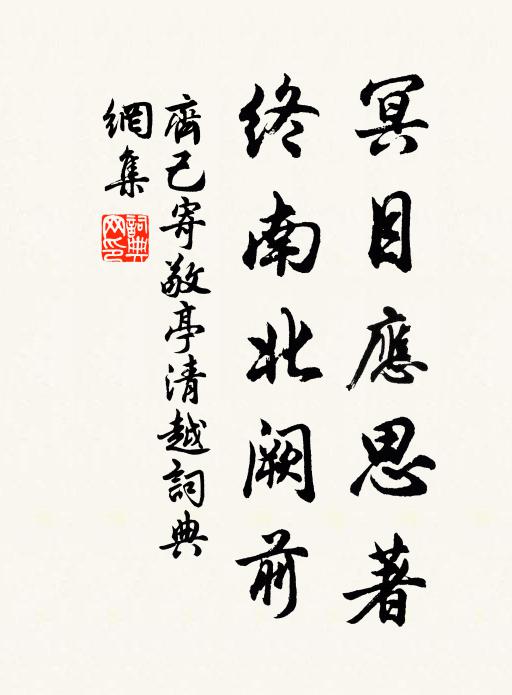 冥目應思著
終南北闕前
齊己寄敬亭清越詞典
網集
詞典
网印